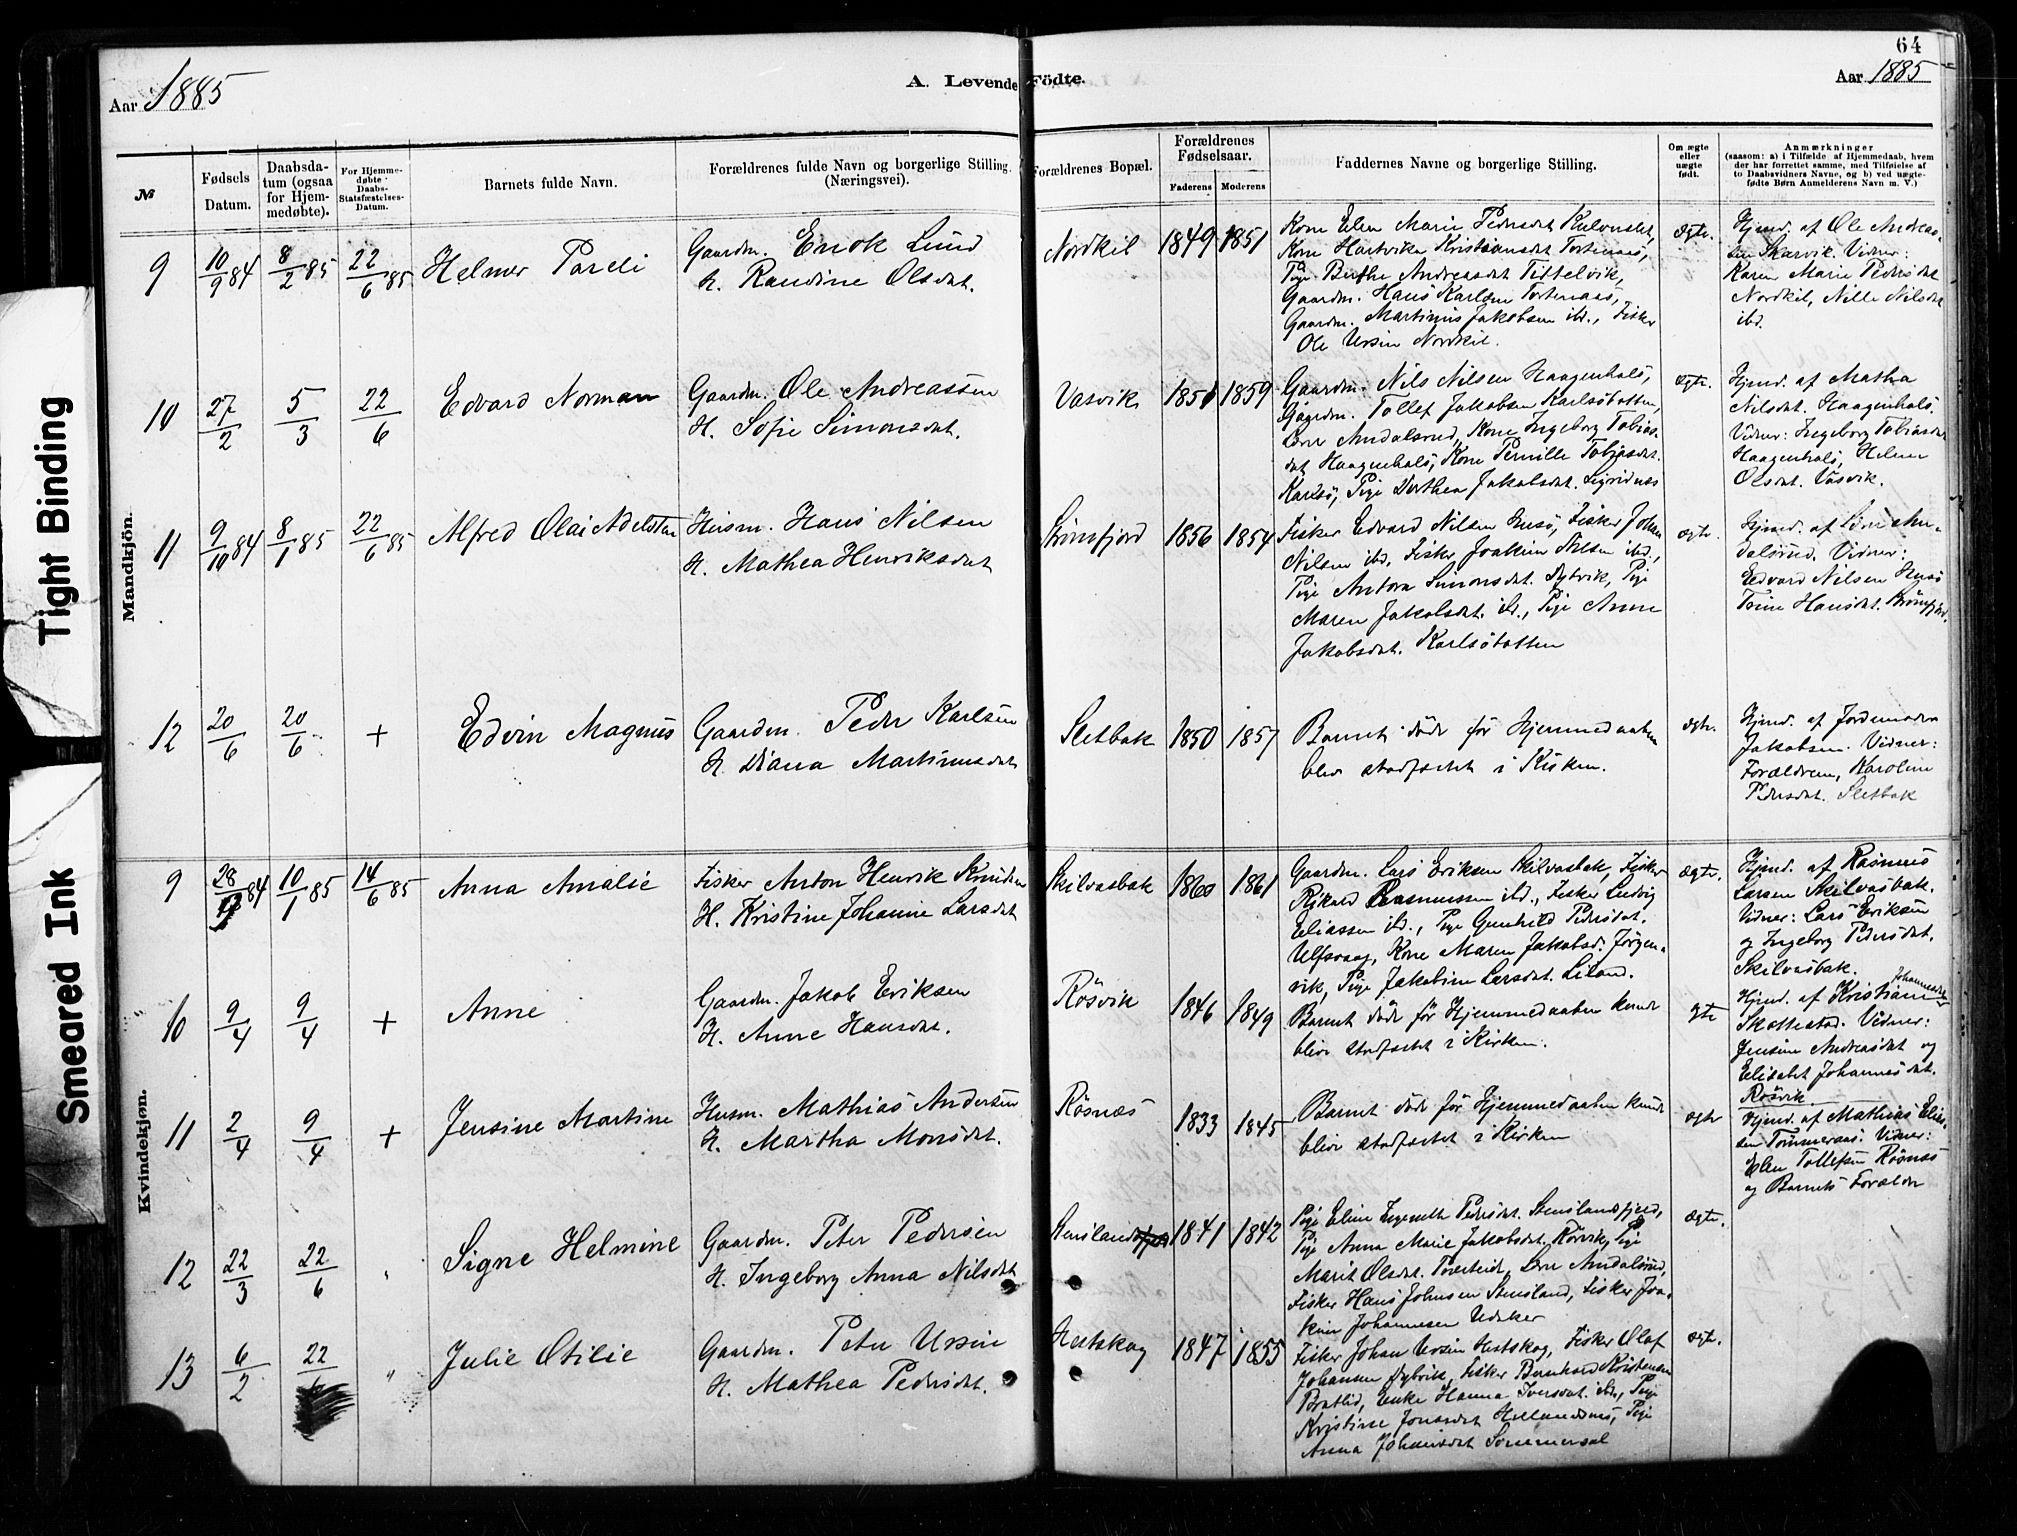 64
Aar 1885
A. Levende Födte.
Aar 1885
Tight Binding
Smeared Ink
Mandkjön.
Kvindekjøn.
№
Fødsels Datum.
Daabsdatum (ogsaa for Hjemmedøbte).
For Hjemmedøbte Daabs-Statsfæstelses-Datum.
Barnets fulde Navn.
Forældrenes fulde Navn og borgerlige Stilling. (Næringsvei).
Forældrenes Bopæl.
Forældrenes Fødselsaar.
Faderens
Moderens
Faddernes Navne og borgerlige Stilling.
Om ægte eller uægte født.
Anmærkninger
(saasom: a) i Tilfælde af Hjemmedaab, hvem
der har forrettet samme, med Tilføielse af
to Daabsvidners Navne, og b) ved uægte-
fødte Børn Anmelderens Navn m. V.)
9 10/9 84 8/2 85 22/6 85 Helmer Pareli
Gaardm. Enok Lund
H. Randine Olsdat.
Nordkil 1849 1851
Kone Elen Marie Pedersdat
Kone Hartvike Kristiansdat Tortenaas,
Pige Berthe Andreasdat Tittelvik,
Gaardm. Hans Karlsen Tortenaas,
Gaardm. Martinus Jakobsen ibd., Fisker
Ole Ursin Nordkil.
Ægte.
Hjmd. af Ole Andreas-
sen Skarvik. Vidner:
Karen Marie Pedersdat
Nordkil, Nille Nilsdat
ibd.
10 27/2 5/3 22/6 Edvard Norman
Gaardm. Ole Andreassen
H. Sofie Simonsdat.
Vasvik 1851 1859
Gaardm. Nils Nilsen Haagenhals,
Gaardm. Tollef Jakobsen Karlsøbotten,
Lørn Andalsrud, Kone Ingeborg Tobias-
dat Haagenhals, Kone Pernille Tobiasdat.
Karlsø, Pige Dorthea Jakobsdat. Sigridnæs
Ægte.
Hjmd. af Matha
Nilsdat. Haagenhals.
Vidner: Ingeborg Tobiasdat
Haagenhals, Helmer
Olsdat. Vasvik.
11 9/10 84 8/1 85 22/6 85 Alfred Olai Adelstan
Husm. Hans Nilsen
H. Mathea Henriksdat
1856 1854
Fisker Edvard Nilsen Husø, Fisker Johan
Nilsen ibd, Fisker Joakim Nilsen ibd.,
Pige Antora Simonsdat. Dybvik, Pige
Maren Jakobsdat. ibd., Pige Anne
Jakobsdat. Karlsøbotten
ægte.
Hjmd. af Lørn An-
dalsrud. Vidner:
Edvard Nilsen Husø
Trine Hansdat.
12 20/6 20/6 + Edvin Magnus
Gaardm. Peder Karlsen
H. Diana Martinusdat
Sletbak 1850 1857
Barnet døde før Hjemmedaaben
blev stadfæstet i Kirken.
Ægte.
Hjmd. af Jordemoder
Jakobsen. Vidner:
Forældrene, Karoline
Pedersdat. Sletbak
9 28/12 84 10/1 85 14/6 85 Anna Amalie
Fisker Anton Henrik Knudsen
H. Kristine Johanne Larsdat
Skilvasbak 1860 1861
Gaardm. Lars Eriksen Skilvasbak, Fisker
Rikard Rasmussen ibd., Fisker Ludvig
Eliassen ibd., Pige Gunhild Pedersdat.
Ulfsvaag, Kone Maren Jakobsd. Jørgen-
vik, Pige Jakobine Larsdat. Liland.
Ægte.
Hjmd. af Rasmus
Larsen Skilvasbak.
Vidner: Lars Eriksen
og Ingeborg Pedersdat.
Skilvasbak.
10 9/4 9/4 + Anne
Gaardm. Jakob Eriksen
H. Anne Hansdat.
Røsvik 1846 1849
Barnet døde før Hjemmedaaben kunde
blive stadfæstet i Kirken.
Hjmd. af Kristian Johannesen
Skottestad. Vidner:
Jensine Andreasdat og
Elisabet Johannesdat.
Røsvik.
11 2/4 9/4 + Jensine Martine
Husm. Mathias Andersen
H. Martha Monsdat.
Røsnæs 1833 1845
Barnet døde før Hjemmedaaben kunde
blive stadfæstet i Kirken
ægte
Hjmd. af Mathias Elias-
sen Tømmeraas. Vidner:
Elen Tollefsen Røsnæs
og Barnets Forældre
12 22/3 22/6 " Signe Helmine
Gaardm. Peter Pedersen
H. Ingeborg Anna Nilsdat
Stensland 1841 1842
Pige Eline Pedersdat. Stenslandsfjord,
Pige Anna Marie Jakobsdat. Rørvik, Pige
Marit Olsdat. Tverteid, Lørn Andalsrud,
Fisker Hans Johnsen Stensland, Fisker Joa-
kim Johannesen
Ægte.
13 6/2 22/ " Julie Otilie
Gaardm. Peter Ursin
H. Mathea Pedersdat.
Hestskog 1847 1855
Fisker Johan Ursin Hestskog, Fisker Olaf
Johansen Dybvik, Fisker Bernhard Kristensen
Bratlid, Enke Hanna Iversdat. ibd., Pige
Kristine Jonasdat Hellandsnæs, Pige
Anna Johansdat Sommersel
ægte.